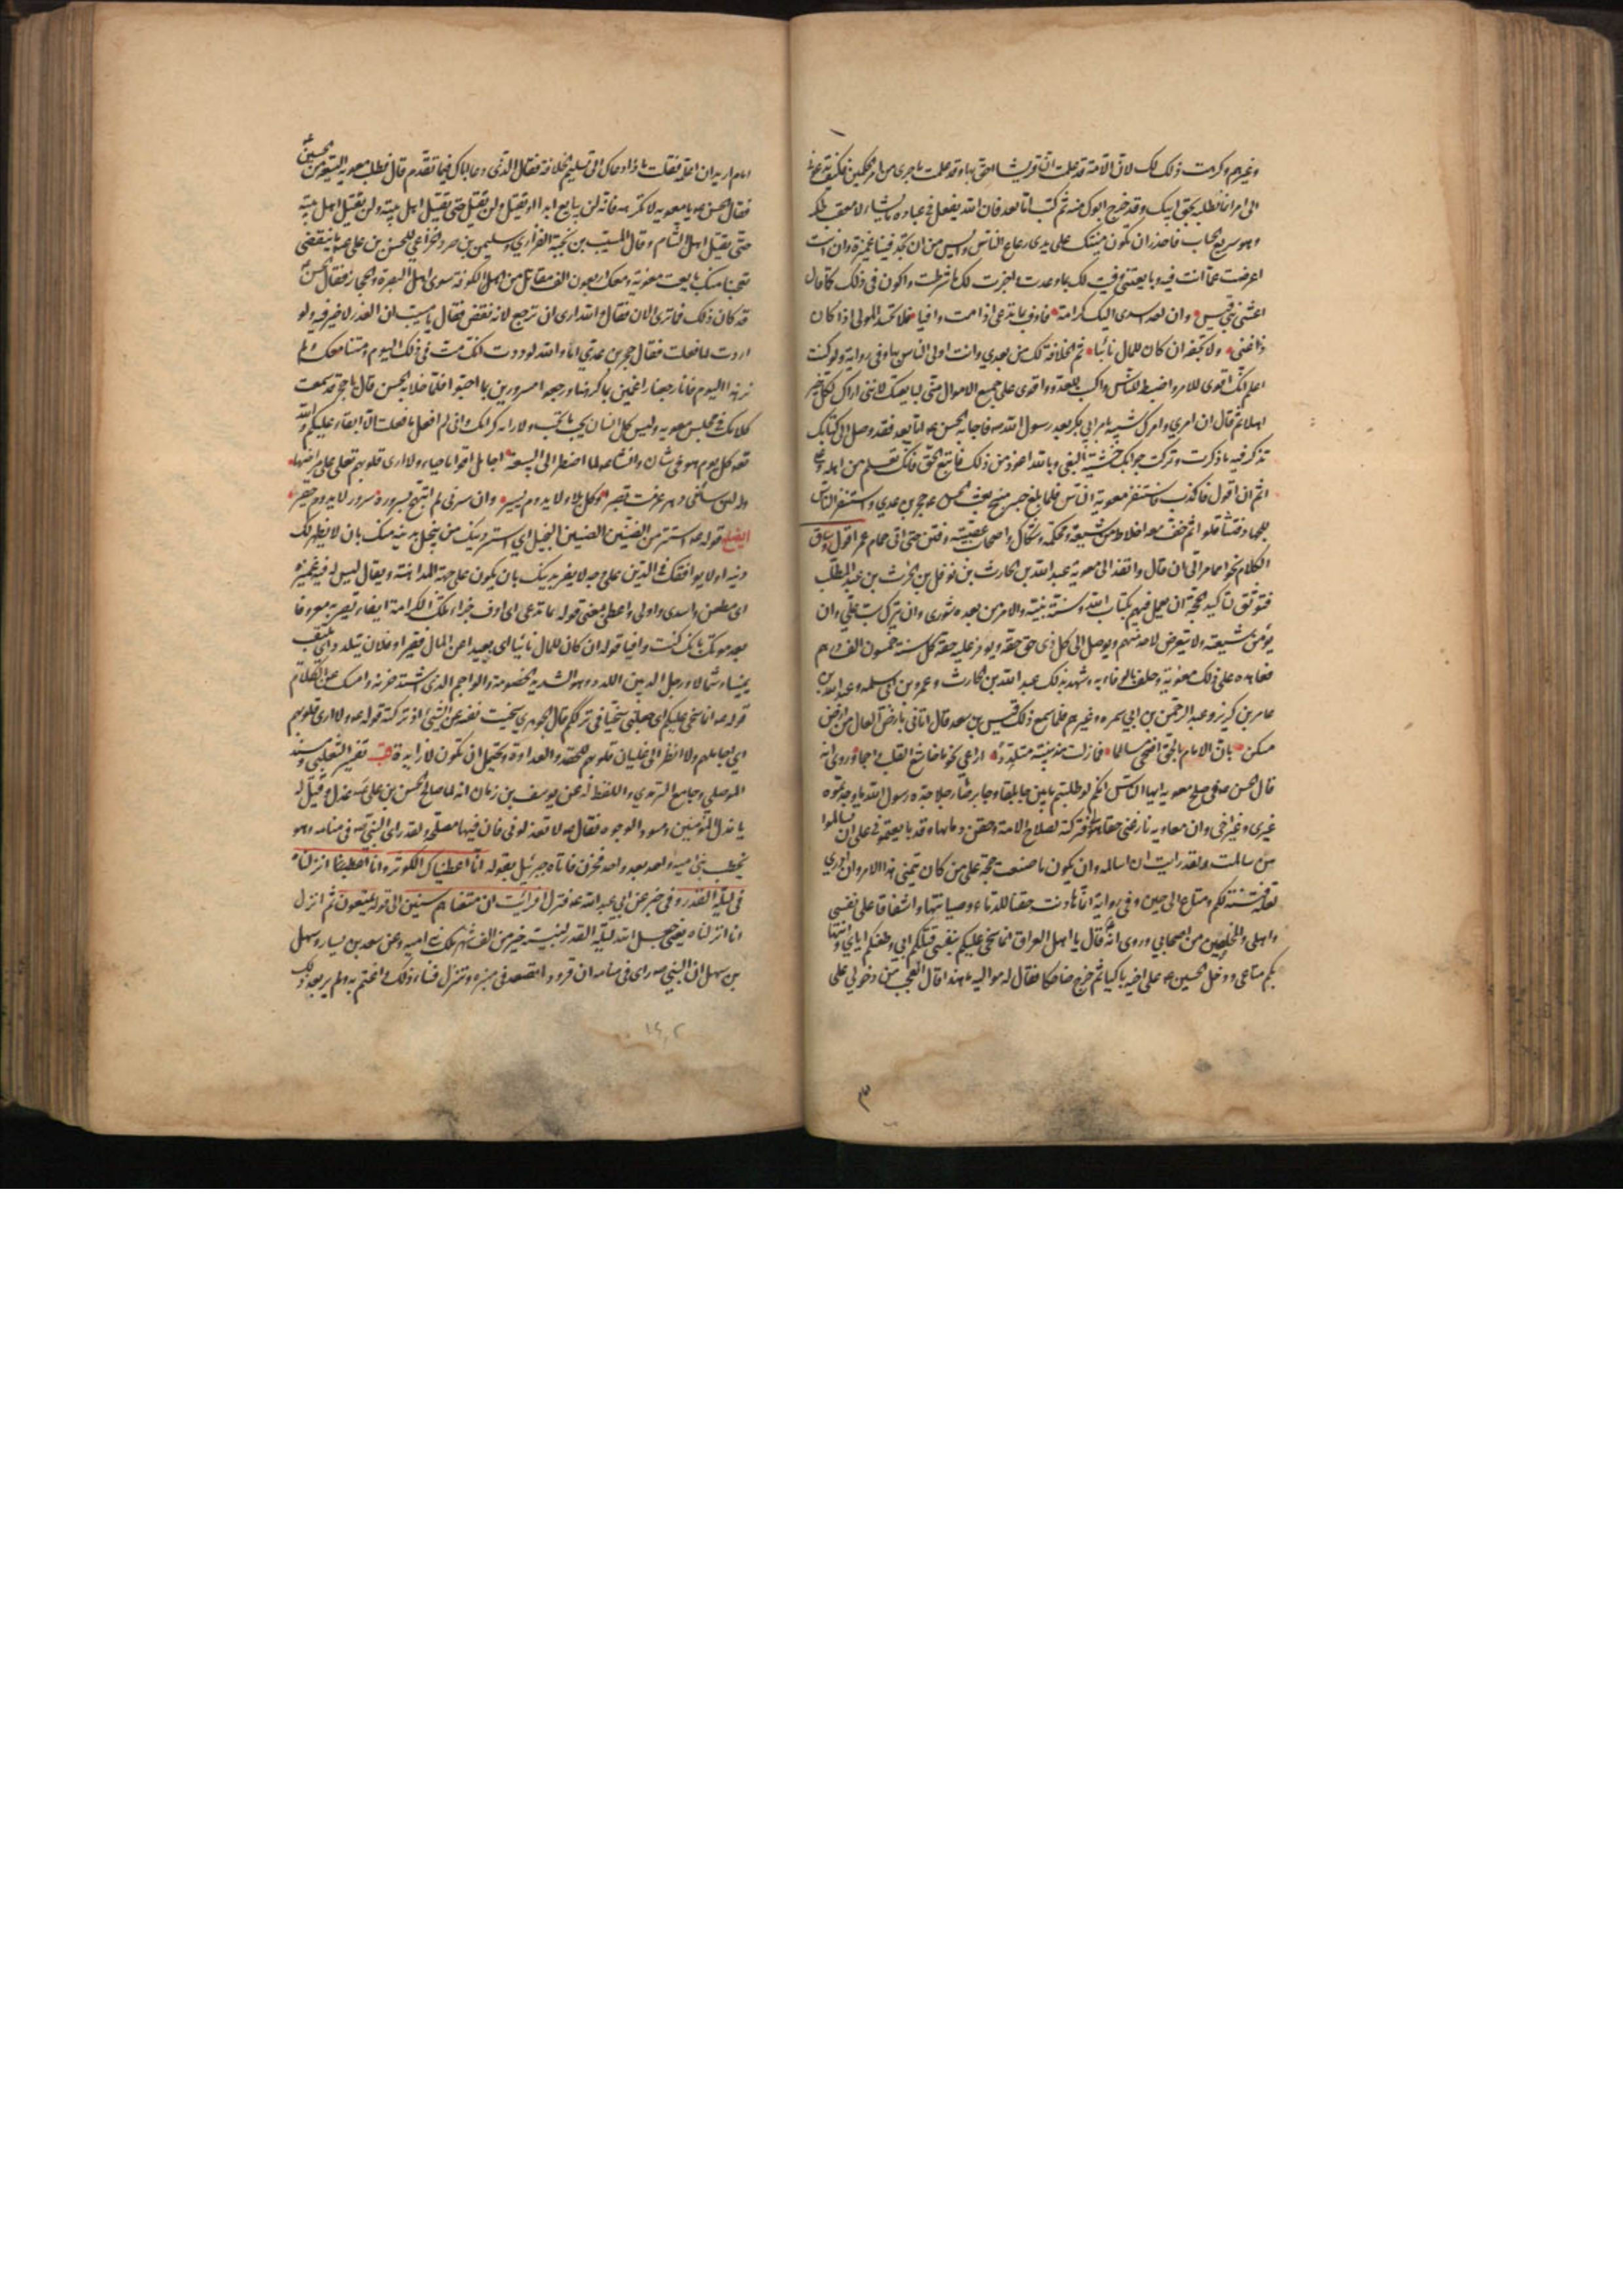 وغيرهم وكرهت ذلك لك لان الامة قد علمت ان قريشا احق بها وقد علمت ما جرى من امر الحكمين فكيف تدعونى
الى امر انما تطلبه بحق ابيك وقد خرج ابوك منه ثم كتب اما بعد فان الله يفعل فى عباده ما يشاء لا معقب لحكمه
وهو سريع الحساب فاحذر ان تكون منيتك على يدى رعاع الناس وايس من ان تجد فينا غميزة وان انت
اعرضت عما انت فيه وبايعتنى وفيت لك بما وعدت وانجزت لك ما شرطت واكون فى ذلك كما قال
اعشى بنى قيس وان احد اسدى اليك كرامة فاوف بما تدعى اذا مت وافيا فلا تحسد المولى اذا كان
ذا غنى ولا تجفه ان كان للمال نائيا ثم الخلافة لك من بعدى وانت اولى الناس بها وفى رواية ولو كنت
اعلم انك اقوى للامر واضبط للناس واكبت للعدو واقوى على جمع الاموال منى لبايعتك لاننى اراك لكل خير
اهلا ثم قال ان امرى وامرك شبيه بامر ابى بكر بعد رسول الله ص فاجابه الحسن ع اما بعد فقد وصل الى كتابك
تذكر فيه ما ذكرت وتركت جوابك خشية البغى وبالله اعوذ من ذلك فاتبع الحق فانك تعلم من اهله وعلى
اثم ان اقول فاكذب فاستنفر معوية الناس فلما بلغ جسر منبج بعث الحسن ع حجر بن عدى واستنفر الناس
للجهاد فتثاقلوا ثم خف معه اخلاط من شيعة ومحكمة وشكاك واصحاب عصبية وفتن حتى اتى حمام عمر اقول وساق
الكلام نحوا مما مر الى ان قال وانفذ الى معوية عبد الله بن الحارث بن نوفل بن الحرث بن عبد المطلب
فتوثق لتاكيد الحجة ان يعمل فيهم بكتاب الله وسنة نبيه والامر من بعده شورى وان يترك سب على وان
يؤمن شيعته ولا يتعرض لاحد منهم ويوصل الى كل ذى حق حقه ويوفر عليه حقه كل سنة خمسون الف درهم
فعاهده على ذلك معوية وحلف بالوفاء به وشهد بذلك عبد الله بن الحارث وعمرو بن ابى سلمه وعبد الله بن
عامر بن كريز وعبد الرحمن بن ابى سمره وغيرهم فلما سمع ذلك قيس بن سعد قال اتانى بارض العال من ارض
مسكن بان الامام الحق اضحى مسالما فما زلت مذ نبئته متلددا اراعى نجوما خاشع القلب واجما وروى انه
قال الحسن ع فى صلح معوية ايها الناس انكم لو طلبتم ما بين جابلقا وجابرصا رجلا جده رسول الله ما وجدتموه
غيرى وغير اخى وان معاوية نازعنى حقا هو لى فتركته لصلاح الامة وحقن دمائها وقد بايعتمونى على ان تسالموا
من سالمت وقد رايت ان اسالمه وان يكون ما صنعت حجة على من كان يتمنى هذا الامر وان ادرى
لعله فتنة لكم ومتاع الى حين وفى رواية انما هادنت حقنا للدماء وصيانتها واشفاقا على نفسى
واهلى والمخلصين من اصحابى وروى انه قال يا اهل العراق انما سخى عليكم بنفسى قتلكم ابى وطعنكم اياى وانتهابكم
متاعى ودخل الحسين ع على اخيه باكيا ثم خرج ضاحكا فقال له مواليه ما هذا قال العجب من دخولى على
امام اريد ان اعلمه فقلت ما ذا دعاك الى تسليم الخلافة فقال الذى دعا اباك فيما تقدم قال فطلب معوية البيعة من الحسين ع
فقال الحسن يا معوية لا تكرهه فانه لن يبايع ابدا او يقتل ولن يقتل حتى يقتل اهل بيته ولن يقتل اهل بيته
حتى يقتل اهل الشام وقال المسيب بن نجبة الفزارى وسليمن بن صرد الخزاعى للحسن بن على ع ما ينقضى
تعجبنا منك بايعت معوية ومعك اربعون الف مقاتل من اهل الكوفة سوى اهل البصرة والحجاز فقال الحسن ع
قد كان ذلك فما ترى الان فقال والله ارى ان ترجع لانه نقض فقال يا مسيب ان الغدر لا خير فيه ولو
اردت لما فعلت فقال حجر بن عدى اما والله لوددت انك مت فى ذلك اليوم ومتنا معك ولم
نر هذا اليوم فانا رجعنا راغمين بما كرهنا ورجعوا مسرورين بما احبوا فلما خلا به الحسن قال يا حجر قد سمعت
كلامك فى مجلس معويه وليس كل انسان يحب ما تحب ولا رايه كرايك وانى لم افعل ما فعلت الا ابقاء عليكم والله
تعالى كل يوم هو فى شان وانشا ع لما اضطر الى البيعة اجامل اقواما حياء ولا ارى قلوبهم تغلى على مراضها
وله لئن ساءنى دهر عزمت تصبرا وكل بلاء لا يدوم يسير وان سرنى لم ابتهج بسروره وكل سرور لا يدوم حقير
ايضاح قوله ع استتر من الضنين الضنين البخيل اى استر دينك ممن يبخل بدينه منك بان لا يظهر لك
دينه او لا يوافقك فى الدين على وجه لا يضر بدينك بان يكون على جهة المداهنة ويقال ليس له فيه غميزة
اى مطعن واسدى واولى واعطى بمعنى قوله بما تدعى اى اوف جزاء تلك الكرامة ايفاء تصير به معروفا
بعد موتك بانك كنت وافيا قوله ان كان للمال نائيا اى بعيدا عن المال فقيرا وفلان يتلدد اى يلتفت
يمينا وشمالا ورجل الد بين اللدد وهو الشديد الخصومة والواجم الذى اشتد حزنه وامسك عن الكلام
قوله ع انما سخى عليكم اى جعلنى سخيا فى ترككم قال الجوهرى سخيت نفسى عن الشئ اذا تركته قوله ع ولا ارى قلوبهم
اى اجاملهم ولا انظر الى غليان قلوبهم للحقد والعداوة ويحتمل ان تكون لا زايدة قب تفسير الثعلبى ومسند
الموصلى وجامع الترمذى واللفظ له عن يوسف بن مازن انه لما صالح الحسن بن على ع عذل وقيل له
يا مذل المؤمنين ومسود الوجوه فقال ع لا تعذلونى فان فيها مصلحة ولقد راى النبى ص فى منامه وهو
يخطب بنى امية واحد بعد واحد فحزن فاتاه جبرئيل بقوله انا اعطيناك الكوثر وانا انزلناه
فى ليلة القدر وفى خبر عن ابى عبد الله ع فنزل افرايت ان متعناهم سنين الى قوله يمتعون ثم انزل
انا انزلناه يعنى جعل الله ليلة القدر لنبيه خيرا من الف شهر ملك بنى امية وعن سعد بن يسار وسهل
بن سهل ان النبى ص راى فى منامه ان قرودا تصعد فى منبره وتنزل فساءه ذلك واغتم به ولم ير بعد ذلك